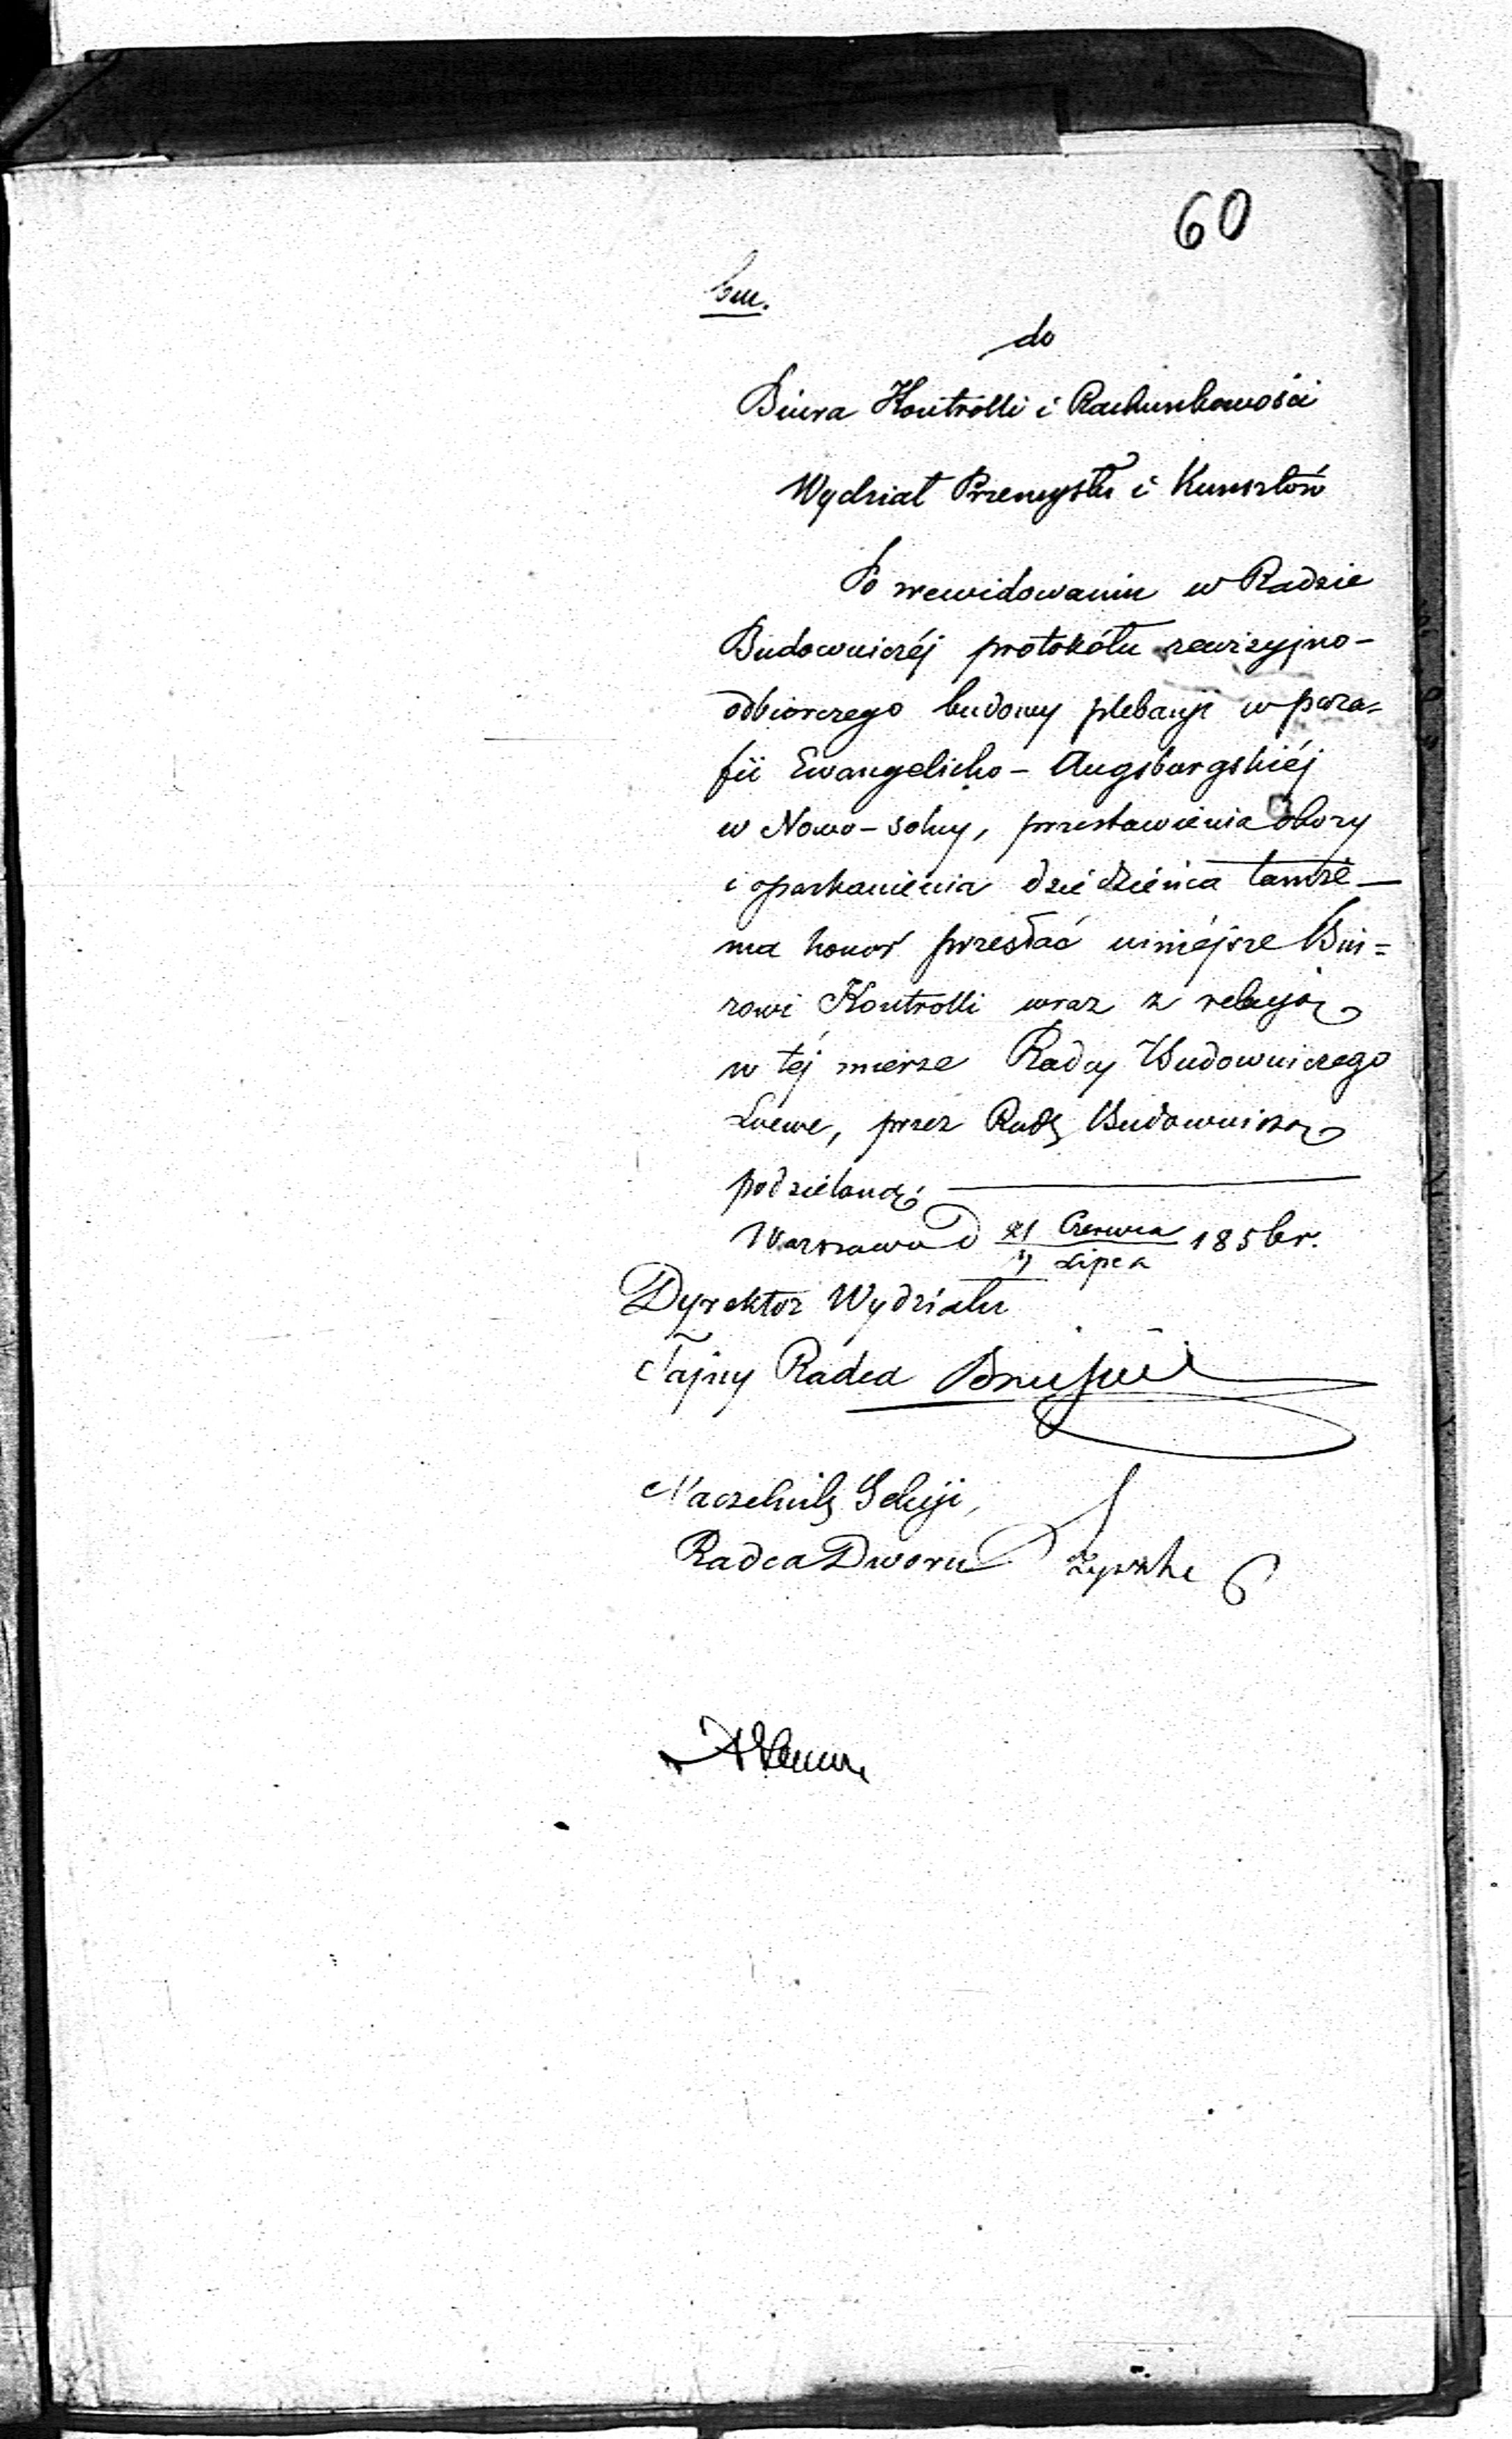 60
do
Biura Kontrolli i Rachunkowości
Wydział Przemysłu i Kunsztów
Po zrewidowaniu w Radzie
Budowniczéj protokółu rewizyjno-
odbiorczego budowy plebanji w para=
fii Ewangelicko-Augsburgskiéj
w Nowo-solny, przestawienia obory
i oparkanienia dziedzieńca tamże —
ma honor przesłać niniéjsze Biu=
rowi Kontrolli wraz z relacją
w téj mierze Radcy Budowniczego
Loewe, przez Radę Budowniczą
podzielaną.
Warszawa D 21 Czerwca 1856 r.
Lipca
Dyrektor Wydziału
Tajny Radca
Naczelnik Sekcji,
Radca Dworu